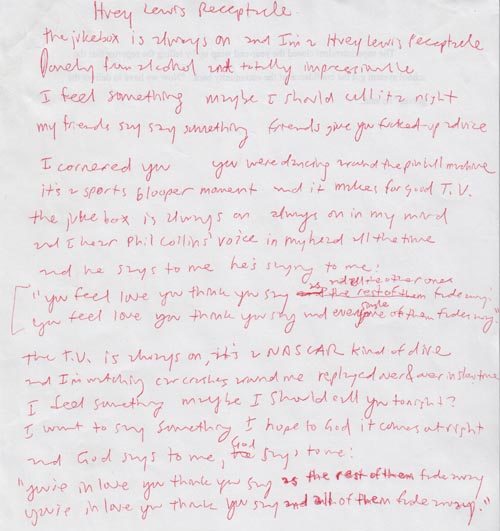 Huey Lewis Receptacle
the jukebox is always on and I'm a Huey Lewis Receptacle
lonely from alcohol and totally impressionable
I feel something maybe I should call it a night
my friends say say something friends give you fucked-up advice
I cornered you you were dancing around the pinball machine
it's a sports blooper moment and it makes for good T.V.
the jukebox is always on always on in my mind
and I hear Phil Collins' voice in my head all the time
and he says to me he's singing to me:
as and all the other ones
"you feel love you think you say as the rest of them fade away
single
you feel love you think you say and every one of them fades away"
the T.V. is always on, it's a NASCAR kind of dive
and I'm watching car crashes around me replayed over & over in slow time
I feel something maybe I should call you tonight?
I want to say something I hope to God it comes out right
and God says to me, God says to me:
"you're in love you think you say as the rest of them fade away
you're in love you think you say and all of them fade away."